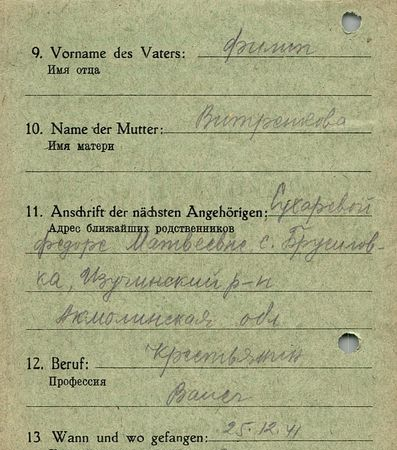 9. Vorname des Vaters: Филип
Имя отца
10. Name der Mutter: Витренкова
Имя матери
11. Anschrift der nächsten Angehörigen: Сухаревой
Адрес ближайших родственников
Федоре Матвеевне с. Брусилов-
ка, р-н
Акмолинская обл
12. Beruf: Крестьянин
Профессия
13 Wann und wo gefangen: 25.12.41